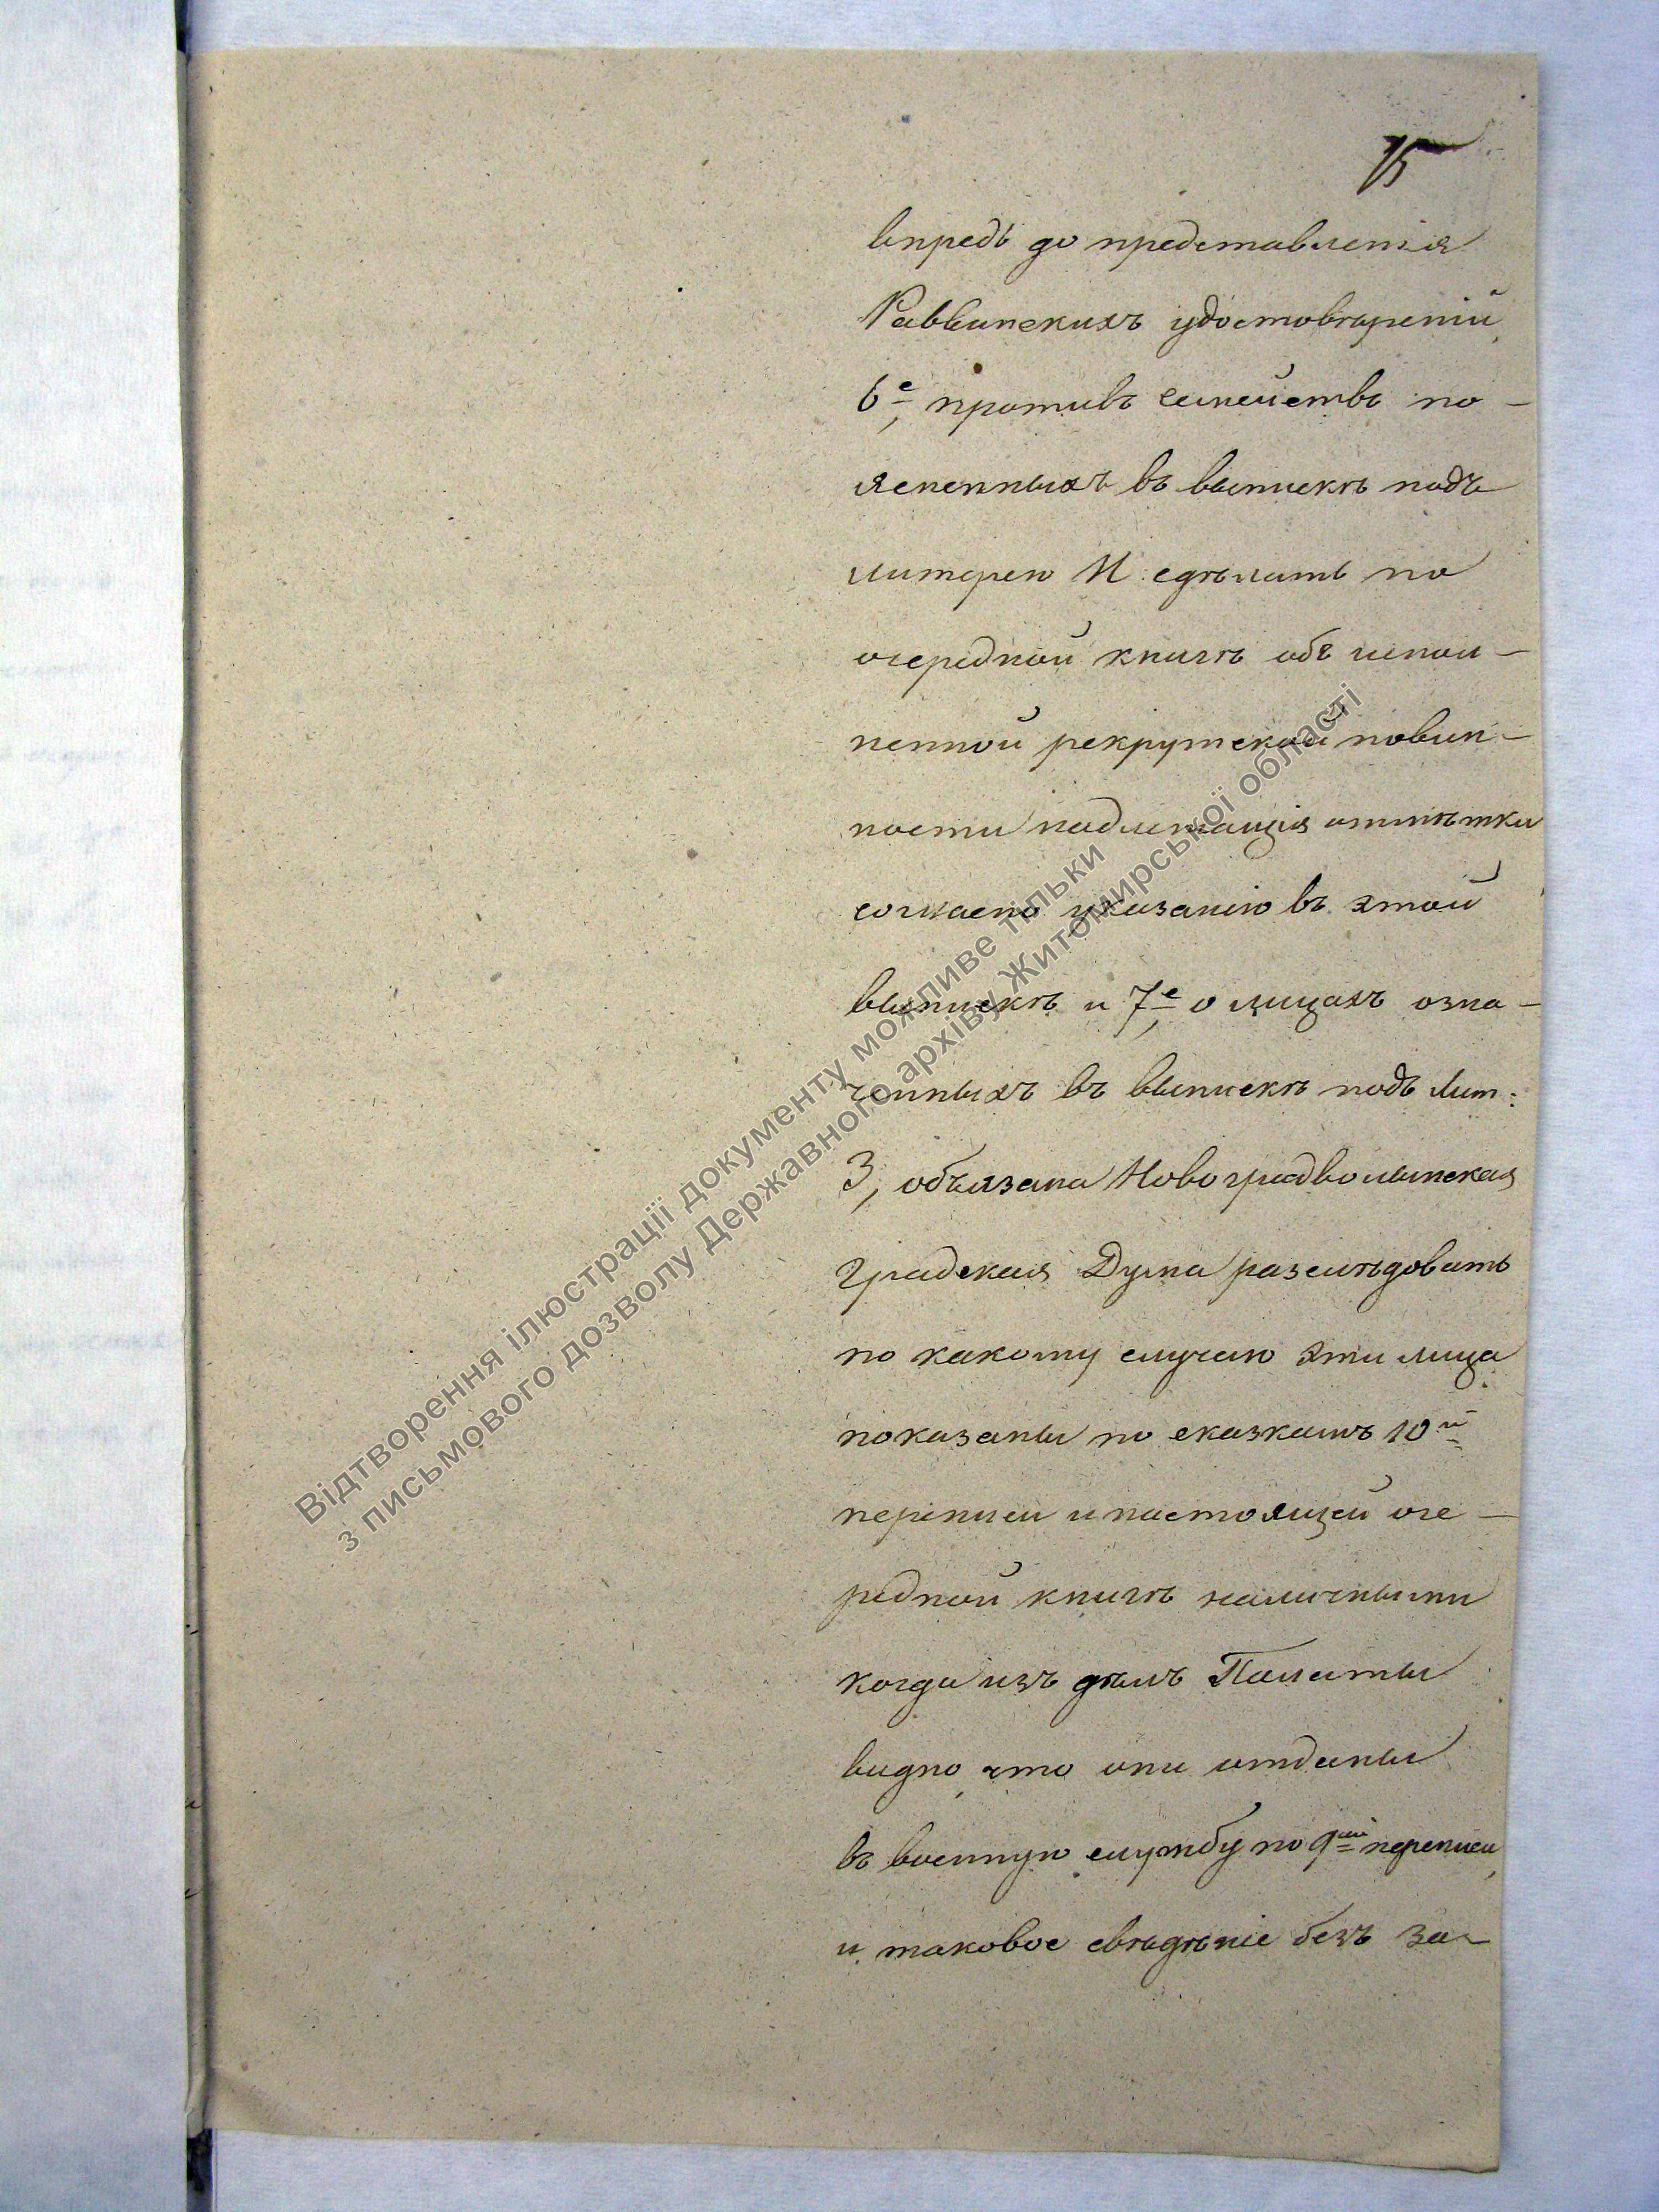 15
впредь до представленія
Раввинскихъ удостовѣреній,
6е, противъ семействъ по-
ясненныхъ въ выпискѣ подъ
литерею И. сдѣлать по
очередной книгѣ объ испол-
ненной рекрутской повин-
ности надлежащія отмѣтки
согласно указанію въ этой
выпискѣ и 7е, о лицахъ озна-
ченныхъ въ выпискѣ подъ Лит:
З, обязана Новоградволынская
Градская Дума разслѣдовать
по какому случаю эти лица
показаны по сказкамъ 10й
переписи и настоящей оче-
редной книгѣ наличными
когда изъ дѣлъ Палаты
видно, что они отданы
въ военную службу по 9ой переписи,
и таковое свѣдѣніе безъ за-
Відтворення ілюстрації документу можливе тільки
з письмового дозволу Державного архіву Житомирської області